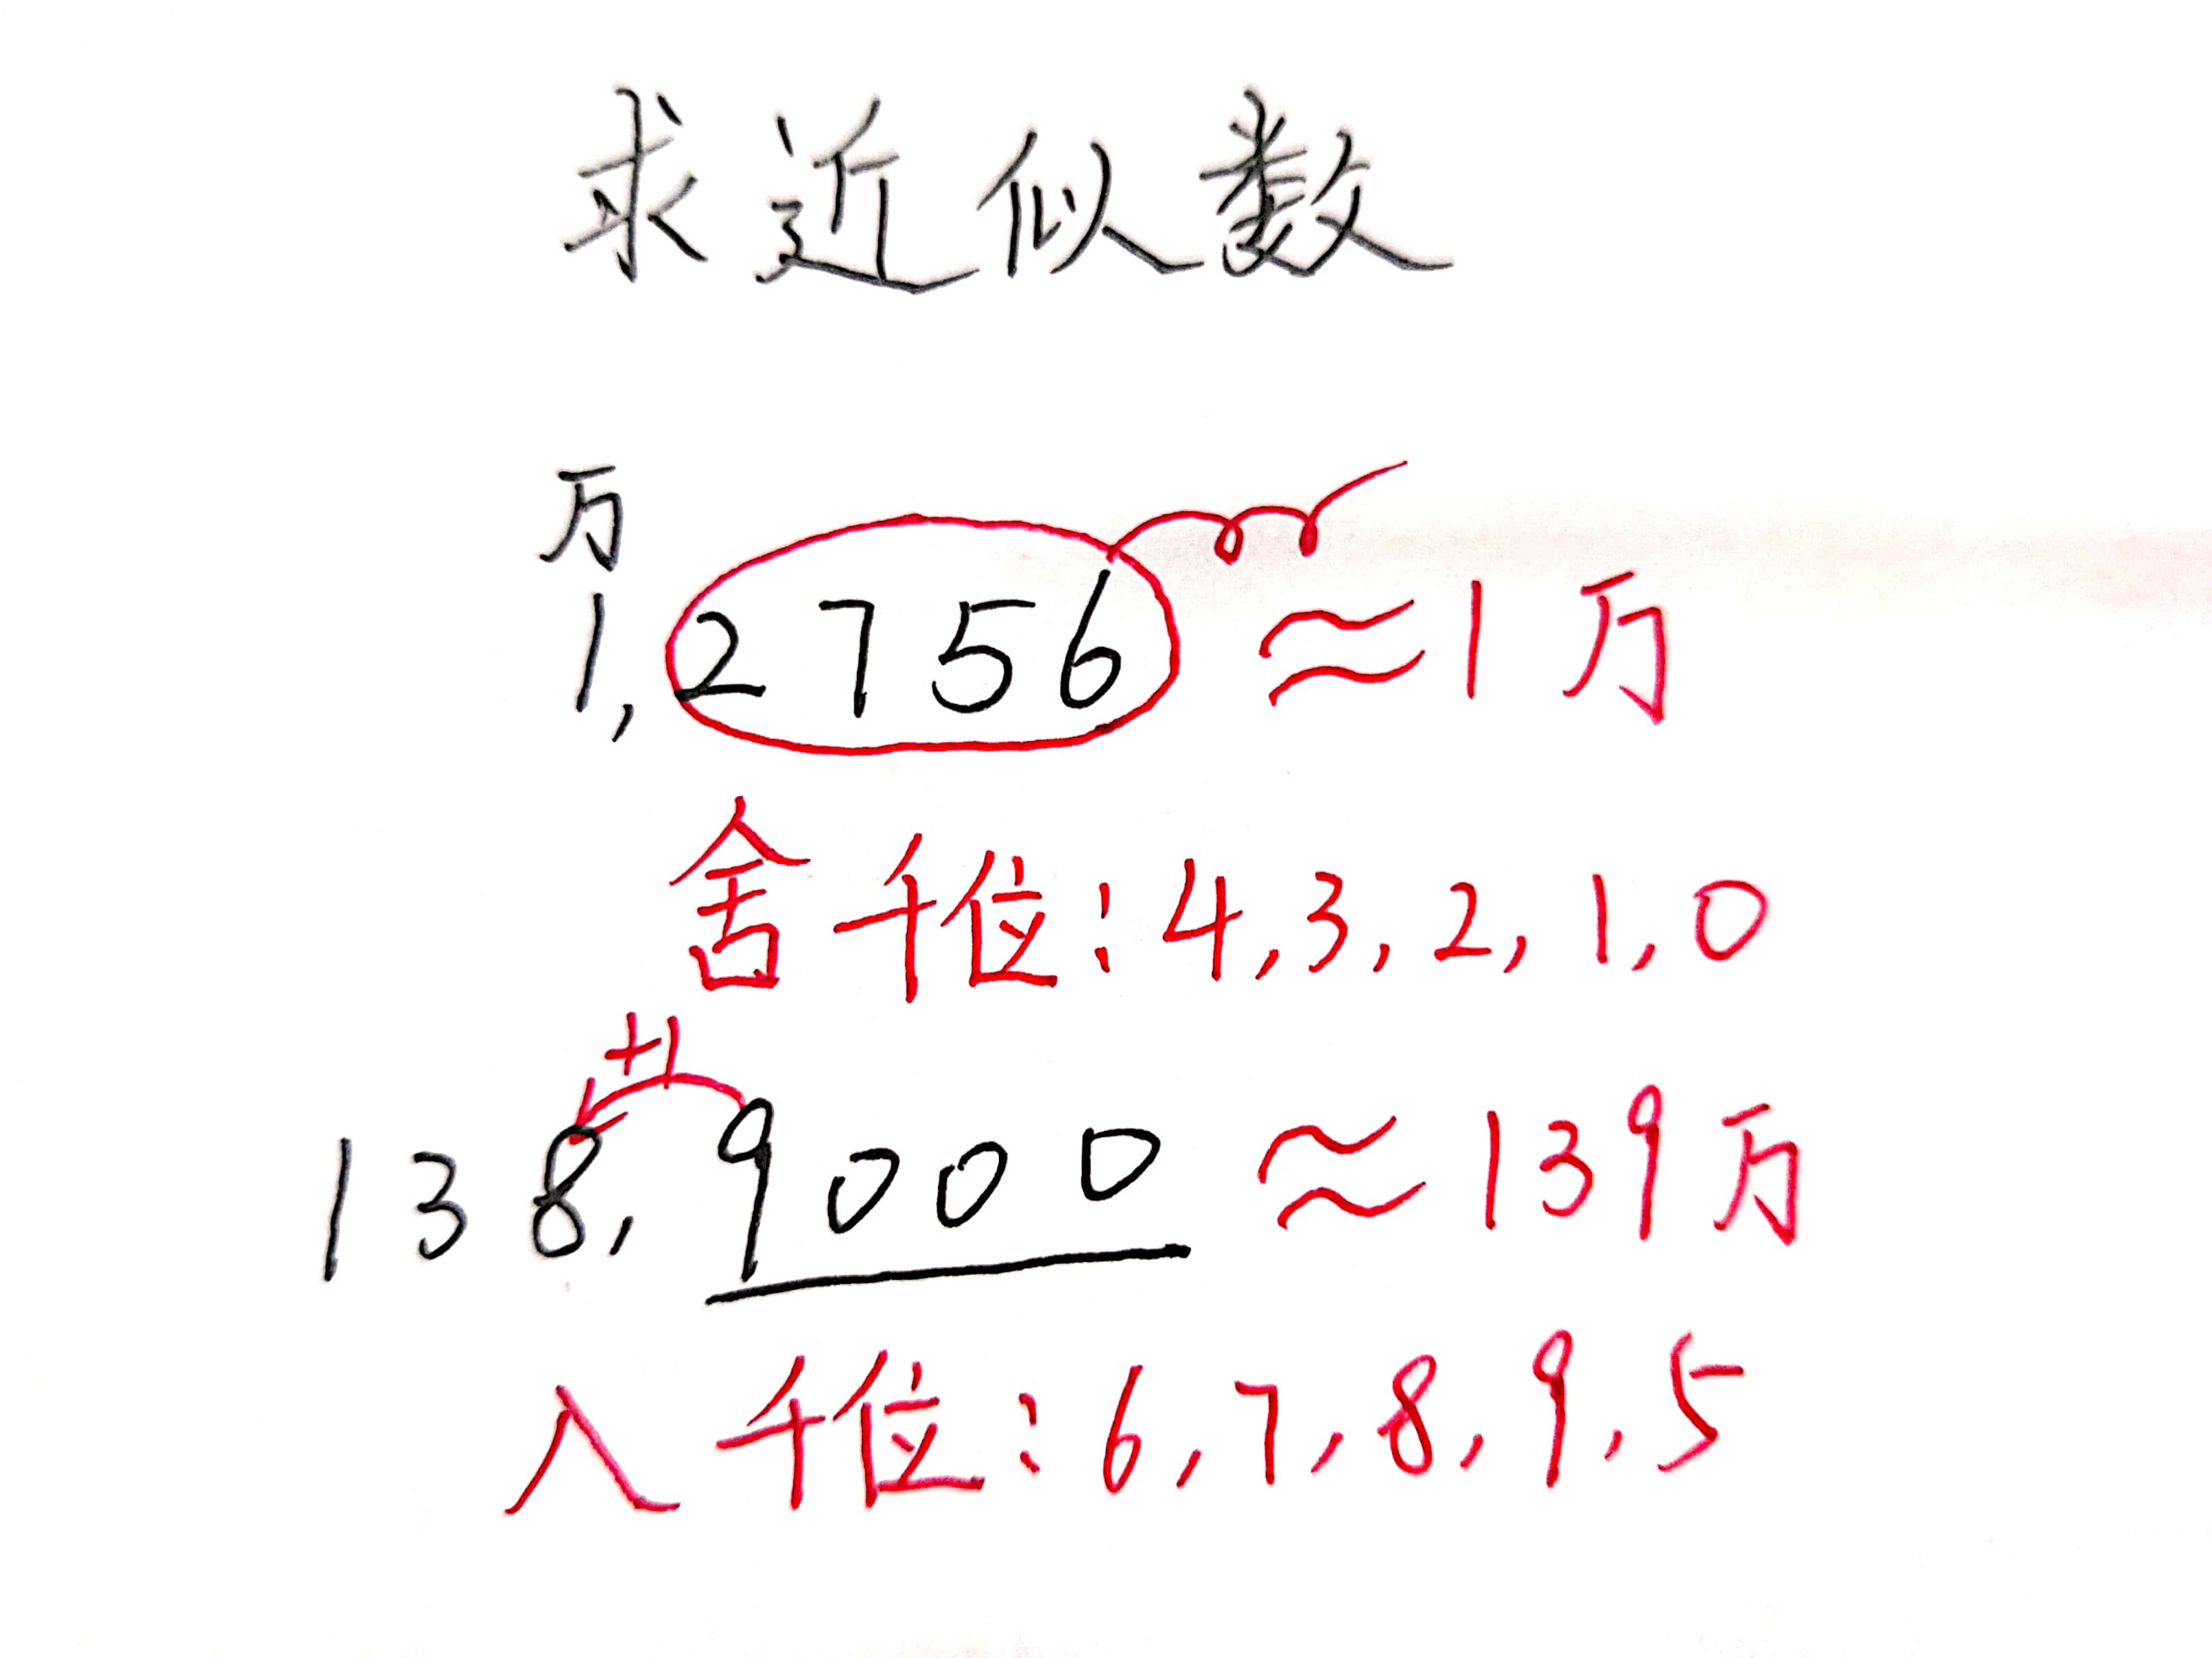 求近似数
万
1,2756≈1万
舍千位:4,3,2,1,0
+1
138,9000≈139万
入千位:6,7,8,9,5